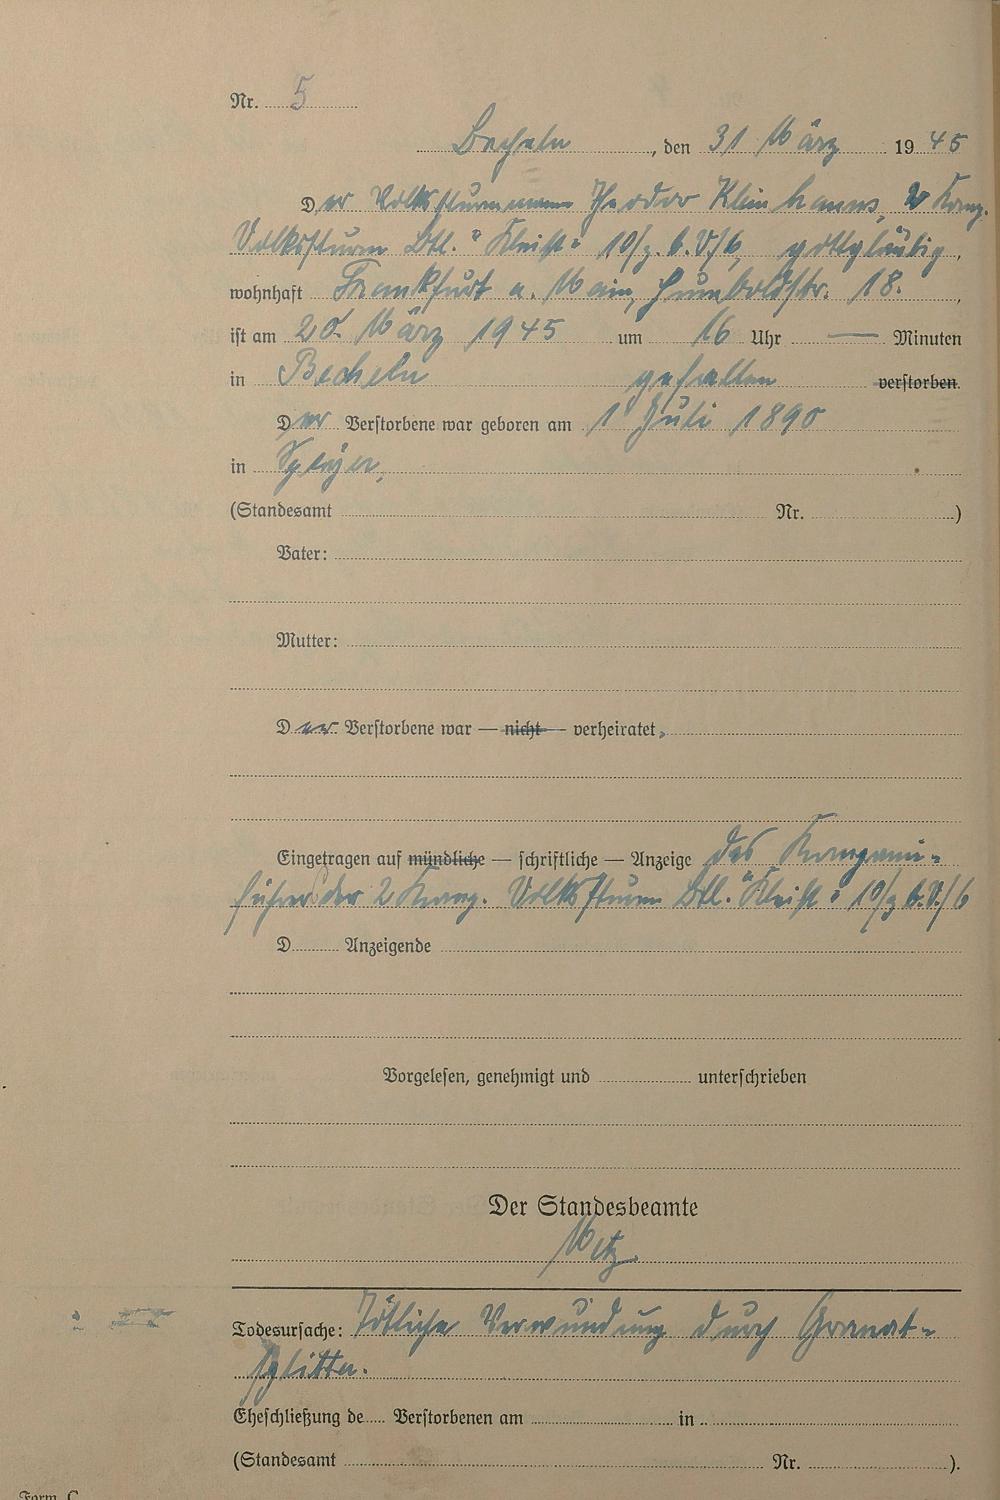 Nr. 5
Becheln, den 31 März 1945
Der Volkssturmmann Theodor Kleinhanns, 2 Komp.
Volkssturm Btl. "Kleist" 10/z. b. V./6, gottgläubig,
wohnhaft Frankfurt a. Main, Humboldtstr. 18.,
ist am 20. März 1945 um 16 Uhr — Minuten
in Becheln gefallen verstorben.
Der Verstorbene war geboren am 1 Juli 1890
in Speyer,
(Standesamt Nr. )
Vater:
Mutter:
Der Verstorbene war — nicht — verheiratet.
Eingetragen auf mündliche — schriftliche — Anzeige des Kompanie-
führers der 2 Komp. Volkssturm Btl. "Kleist" 10/z. b. V./6
D Anzeigende
Vorgelesen, genehmigt und unterschrieben
Der Standesbeamte
Metz
Todesursache: Tötliche Verwundung durch Granat-
splitter.
Eheschließung de Verstorbenen am in
(Standesamt Nr. ).
Form. C